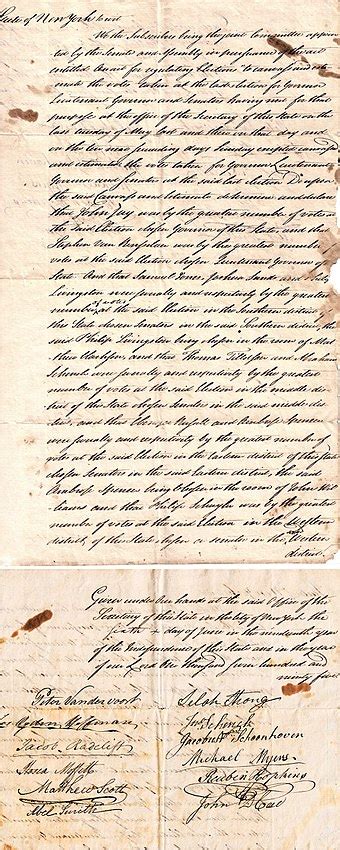 State of New York to wit
We the Subscribers being the joint Committee appoin
ted by the Senate and Assembly in pursuance of the act
entitled An act for regulating Elections to canvass and esti
mate the votes taken at the last election for Governor
Lieutenant Governor and Senators having met for that
purpose at the office of the Secretary of this State on the
last tuesday of May last and then on that day and
on the succeeding days Sunday excepted canvassed
and estimated the votes taken for Governor Lieutenant
Governor and Senators at the said last election Do upon
the said Canvass and Estimate determine and declare
that John Jay was by the greatest number of votes at
the said Election chosen Governor of this State, and that
Stephen Van Renselaer was by the greatest number
votes at the said election chosen Lieutenant Governor of
State And that Samuel Jones, Joshua Sands and Philip
Livingston were severally and respectively by the greatest
number of votes at the said Election in the Southern district
this State chosen Senators in the said Southern district, the
said Philip Livingston being chosen in the room of Mat
thew Clarkson, and that Thomas Tillotson and Abraham
Schenck were severally and respectively by the greatest
number of votes at the said Election in the middle dis
trict of this State chosen Senators in the said middle dis
trict, and that Ebenezer Russell and Ambrose Spencer
were severally and respectively by the greatest number of
votes at the said Election in the Eastern district of this State
chosen Senators in the said Eastern district, the said
Ambrose Spencer being chosen in the room of John Wil
liams and that Philip Schuyler was by the greatest
number of votes at the said Election in the Western
district of this State chosen a senator in the Western
district.
Given under Our hands at the said Office of the
Secretary of this State in the City of New York the
sixth day of June in the nineteenth year
of the Independence of this State and in the year
of our Lord One thousand seven hundred and
ninety five.
Peter Vandervoort
Selah Strong
Jno Schenck
Jacob Radclift
Jacobus Schoonhoven
Michael Myers
Matthew Scott
Reuben Hopkins
Abel Smith
John